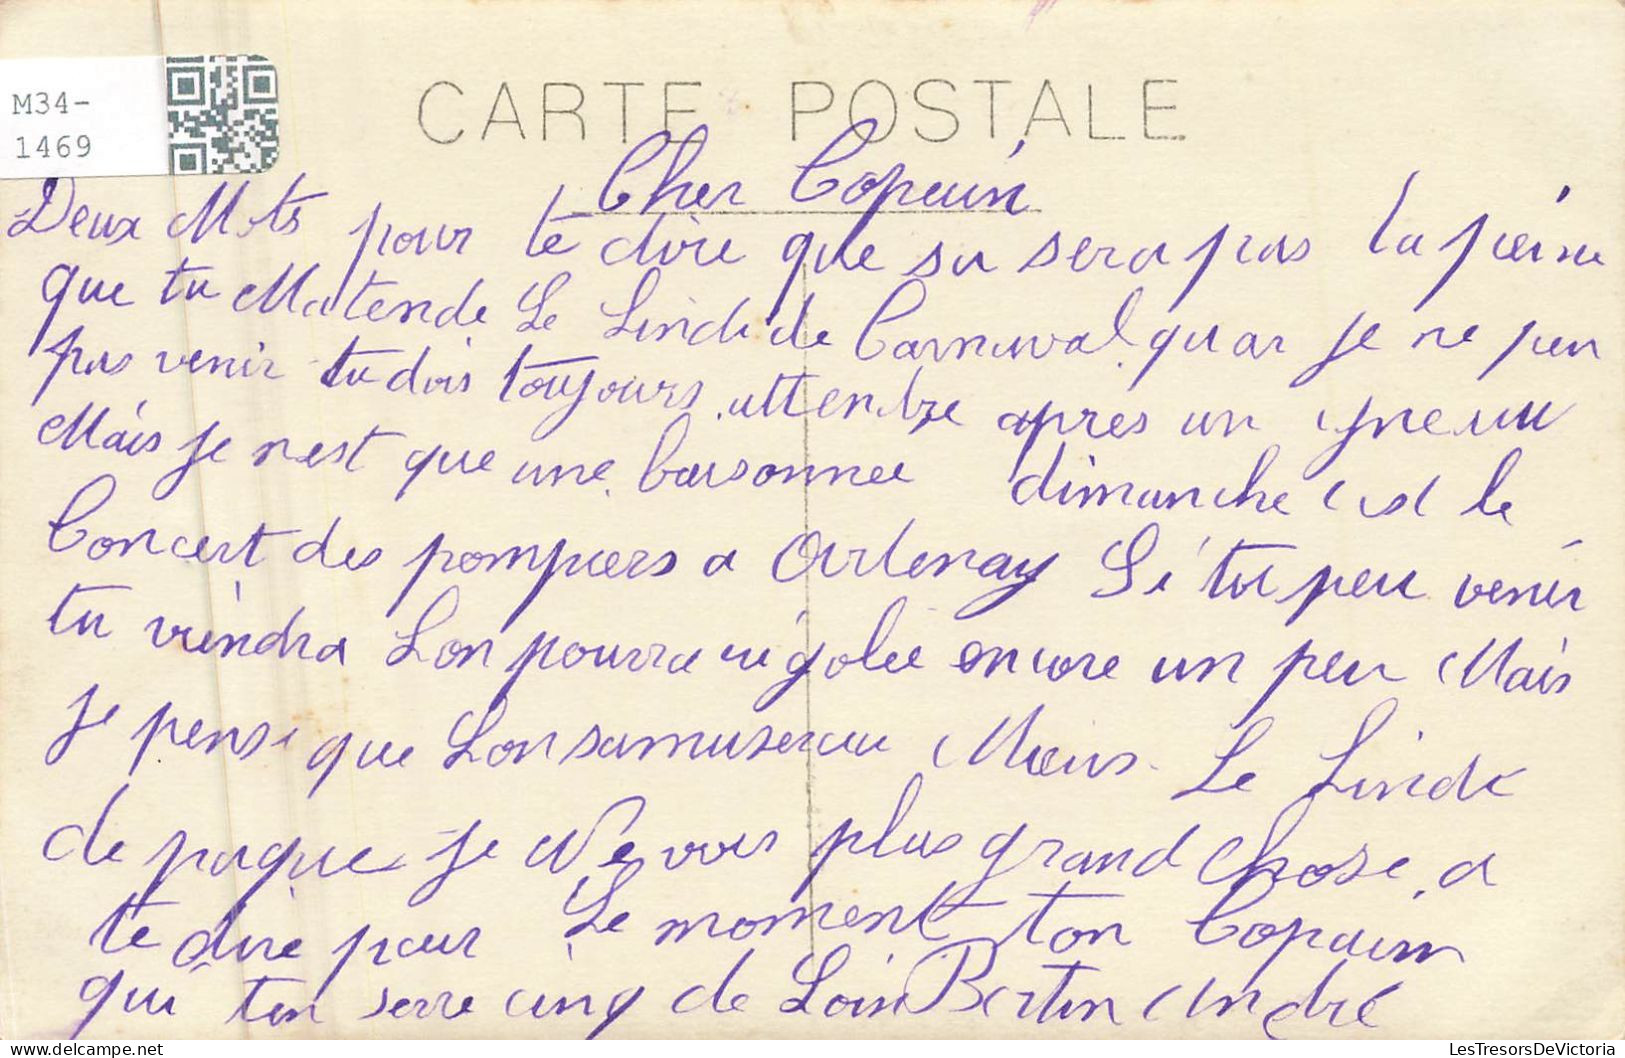 M34-
1469
CARTE POSTALE
Cher Copain
Deux Mots pour te dire que sa sera pas la peine
que tu Matende Le Lindi de Carnaval quar je ne peu
pas venir tu dois toujours attendre apres un
Mais je nest que une dimanche cest le
Concert des pompiers a Artenay Si tu peu venir
tu viendra Lon pourra rigolee encore un peu Mais
je pense que Lon samuserau Mieus Le Lindi
de paque je Ne vois plus grand chose a
te dire pour Le moment ton Copain
qui ten serre cinq de Loin Bertin André
LesTresorsDeVictoria